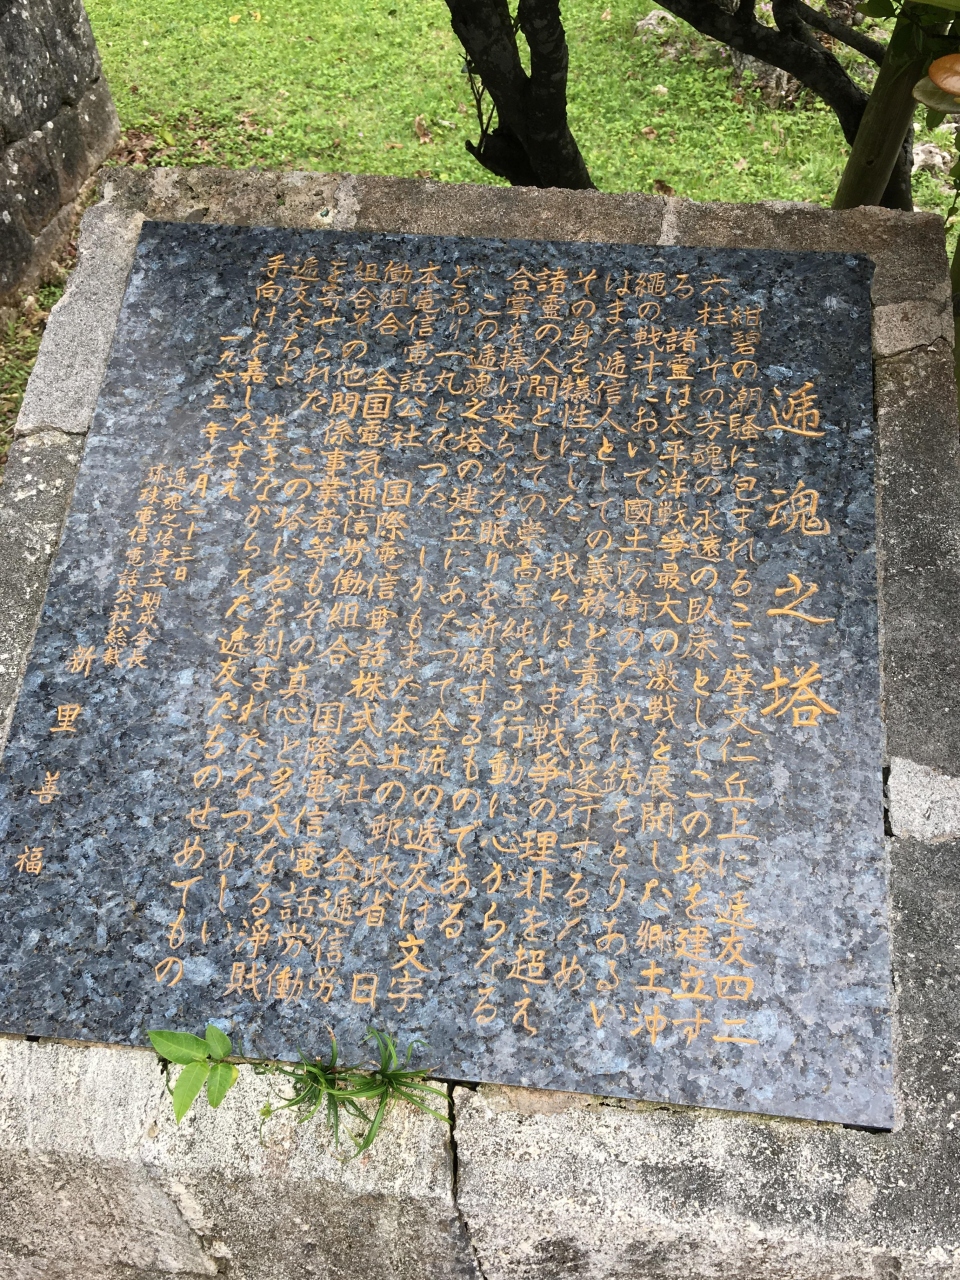 遞魂之塔
紺碧の潮騒に包まれるここ摩文仁丘上に遞友四二
六柱 その芳魂の永遠の臥床としてこの塔を建立す
る 諸靈は太平洋戦爭最大の激戦を展開した郷土沖
繩の戦斗において國土防衛のために銃をとりあるい
はまた遞信人としての義務と責任を遂行するため
その身を犠牲にした 我々はいま戦爭の理非を超え
諸霊の人間としての崇高至純なる行動に心からなる
合掌を捧げ安らかな眠りを祈願するものである
この遞魂之塔の建立にあたつて全琉の遞友は文字
どおり一丸となつた しかもまた本土の郵政省 日
本電信電話公社 国際電信電話株式会社 全遞信労
働組合 全国電気通信労働組合 国際電信電話労働
組合その他関係事業者等もその真心と多大なる淨財
を寄せられた この塔に名を刻まれたなつかしい
遞友たちよ 生きながらえた遞友たちのせめてもの
手向けを嘉したまえ
一九六五年六月二十三日
遞魂之塔建立期成会長
琉球電信電話公社総裁
新里善福